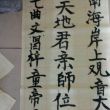 南海岸上观音
天地君親師位
七曲文昌梓童帝